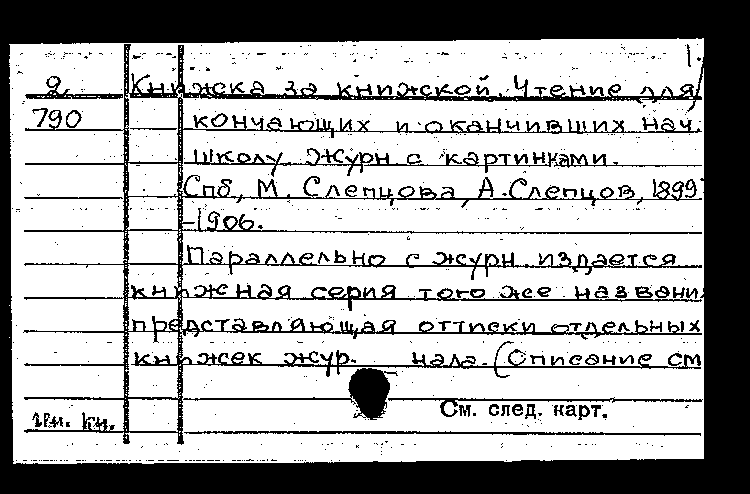 1.
2. Книжка за книжкой. Чтение для
790 кончающих и оканчивших нач.
школу. Журн с картинками.
Спб, М. Слепцова, А. Слепцов, 1899
-1906.
Параллельно с журн издается
книжная серия того же названи
представляющая оттиски отдельных
книжек жур. нала. (Описание см
См. след. карт.
кн.